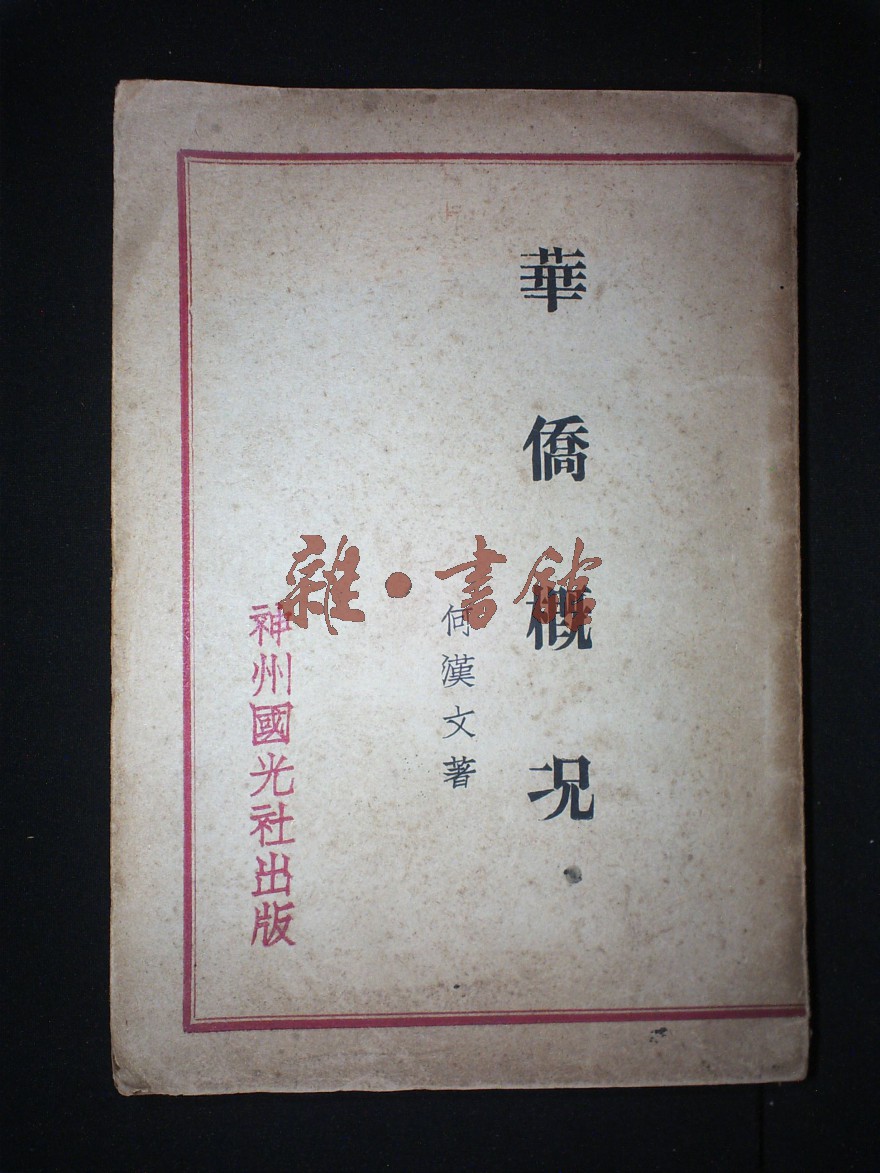 華僑概況
何漢文著
神州國光社出版
雜·書館